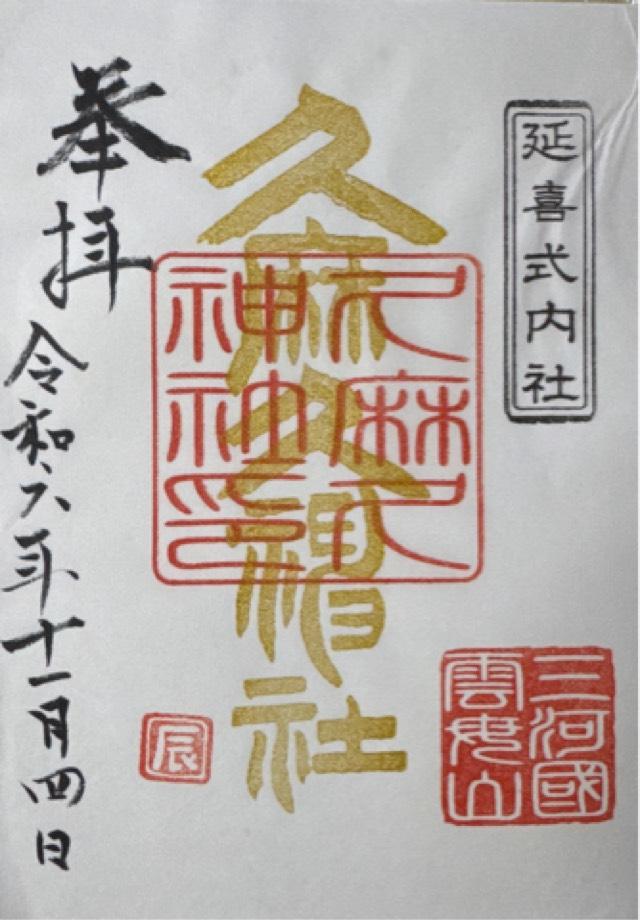 延喜式内社
三河國
雲母山
久麻久神社
久麻久
神社印
奉拝
令和六年十一月四日
辰